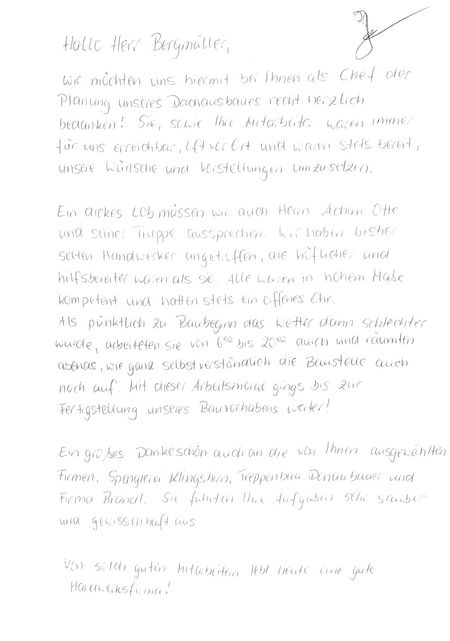 Hallo Herr Bergmüller,
wir möchten uns hiermit bei Ihnen als Chef der
Planung unseres Dachausbaues recht herzlich
bedanken! Sie, sowie Ihre Mitarbeiter waren immer
für uns erreichbar, oft vor Ort und waren stets bereit,
unsere Wünsche und Vorstellungen umzusetzen.
Ein dickes Lob müssen wir auch Herrn Achim Otte
und seiner Truppe aussprechen. Wir haben bisher
selten Handwerker angetroffen, die höflicher und
hilfsbereiter waren als sie. Alle waren in hohem Maße
kompetent und hatten stets ein offenes Ohr.
Als pünktlich zu Baubeginn das Wetter dann schlechter
wurde, arbeiteten sie von 6⁰⁰ bis 20⁰⁰ durch und räumten
abends, wie ganz selbstverständlich die Baustelle auch
noch auf. Mit dieser Arbeitsmoral gings bis zur
Fertigstellung unseres Bauvorhabens weiter!
Ein großes Dankeschön auch an die von Ihnen ausgewählten
Firmen. Spenglerei Klingshirn, Treppenbau Donaubauer und
Firma Brandl. Sie führten Ihre Aufgaben sehr sauber
und gewissenhaft aus
Von solch guten Mitarbeitern lebt heute eine gute
Handwerksfirma!